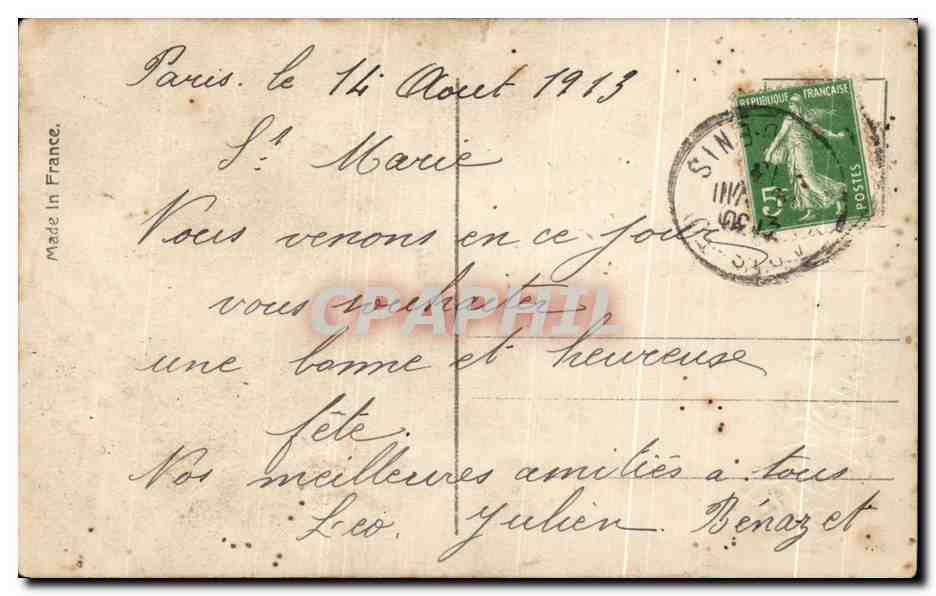 Paris. le 14 Aout 1913
St Marie
Nous venons en ce jour
vous souhaiter
une bonne et heureuse
fête.
Nos meilleures amitiés a tous
Leo. Julien Bénazet
Made In France.
REPUBLIQUE FRANÇAISE
POSTES
5
CPAPHIL